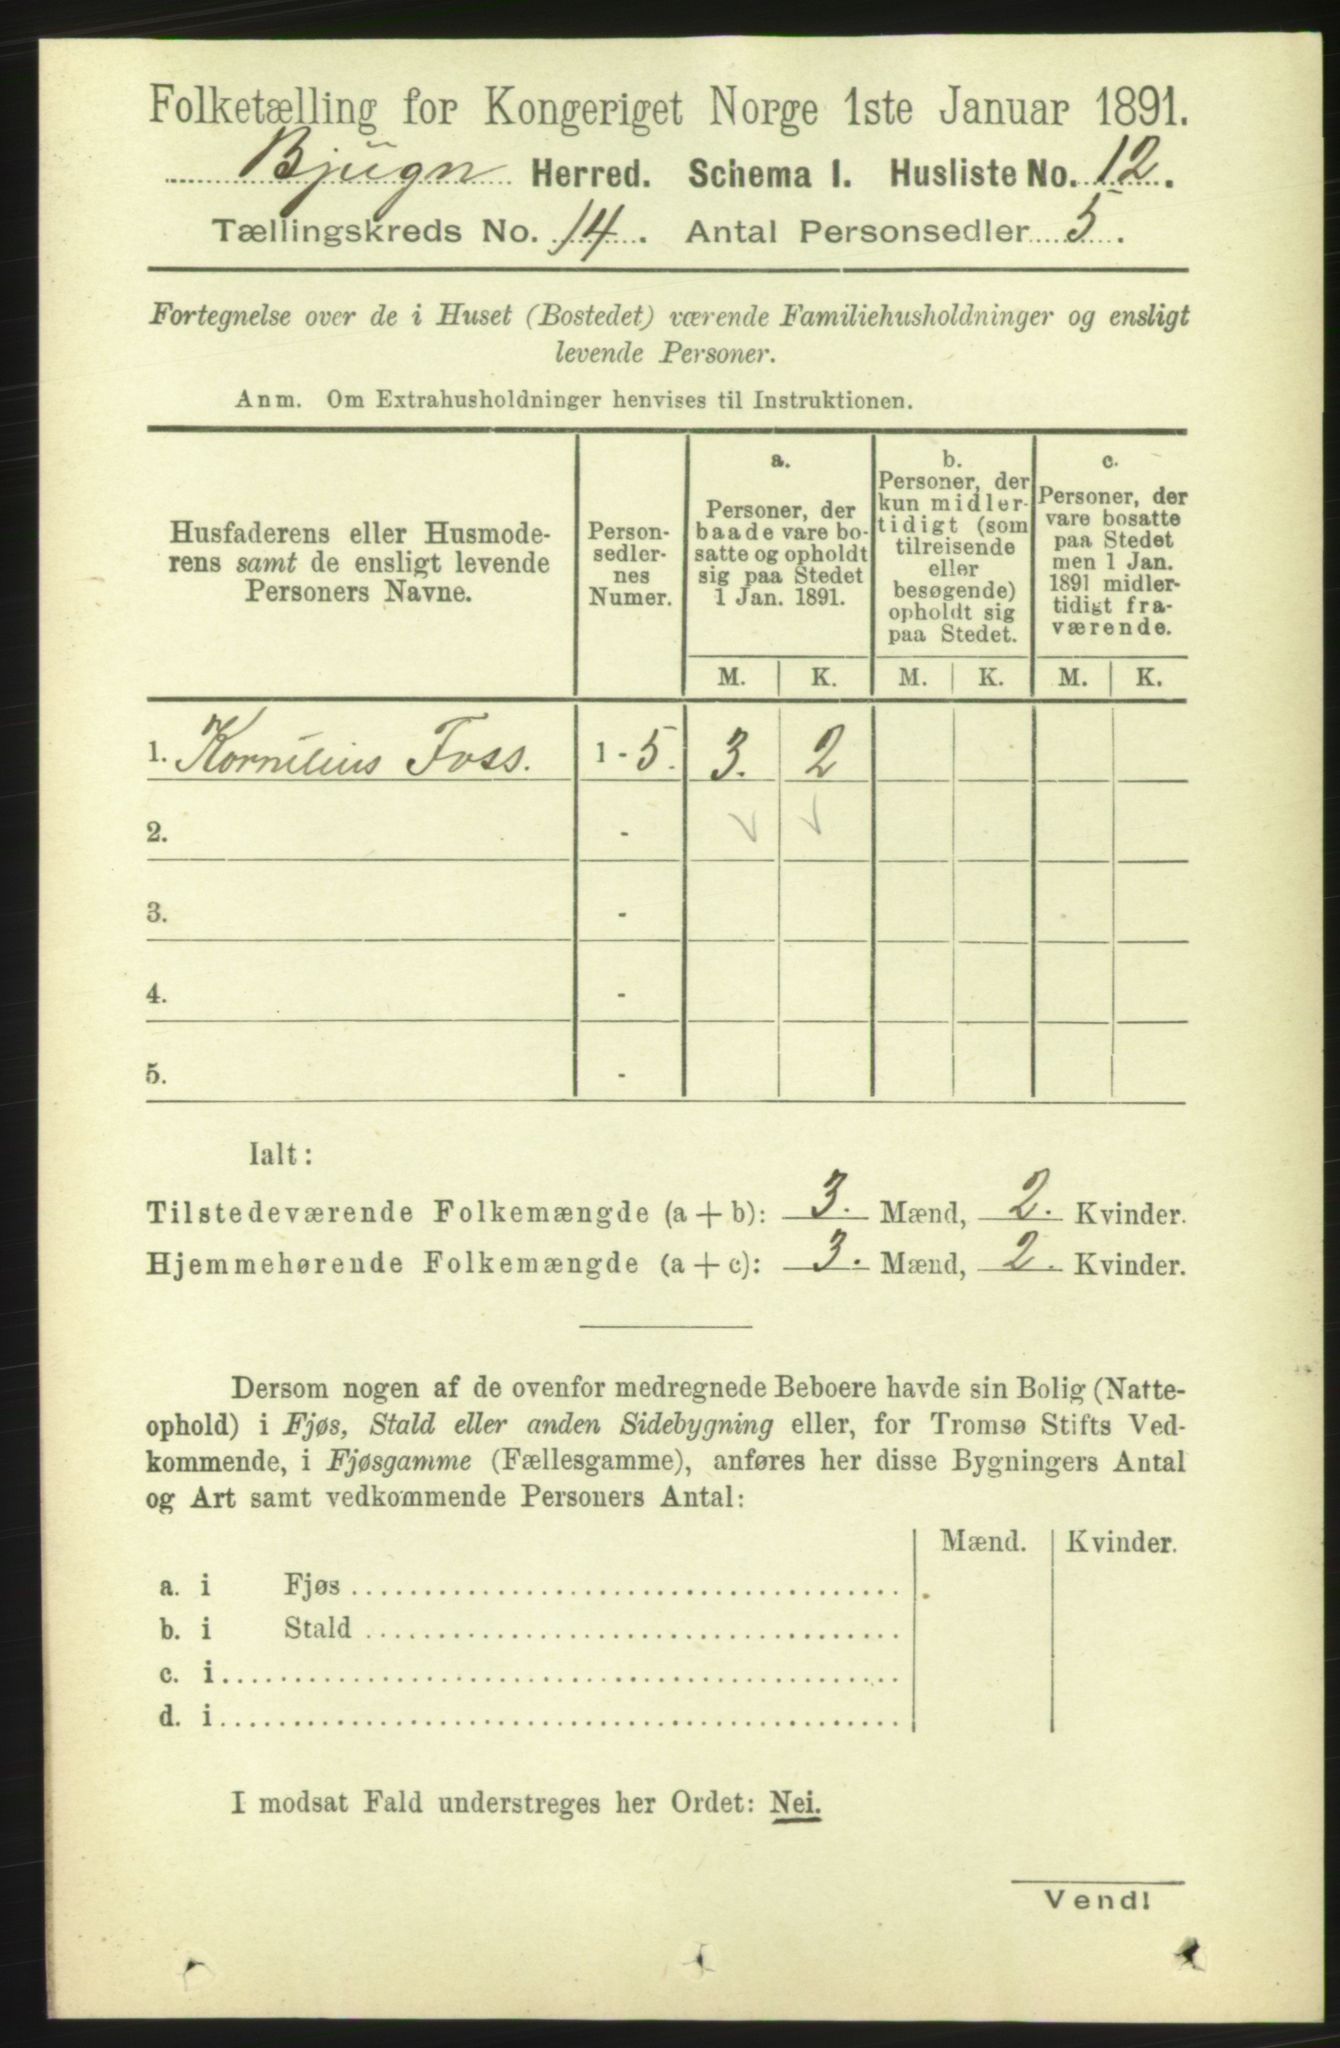 Folketælling for Kongeriget Norge 1ste Januar 1891.
Bjugn Herred. Schema I. Husliste No. 12.
Tællingskreds No. 14. Antal Personsedler 5.
Fortegnelse over de i Huset (Bostedet) værende Familiehusholdninger og ensligt
levende Personer.
Anm. Om Extrahusholdninger henvises til Instruktionen.
Husfaderens eller Husmode-
rens samt de ensligt levende
Personers Navne.
Person-
sedler-
nes
Numer.
a.
Personer, der
baade vare bo-
satte og opholdt
sig paa Stedet
1 Jan. 1891.
b.
Personer, der
kun midler-
tidigt (som
tilreisende
eller
besøgende)
opholdt sig
paa Stedet.
c.
Personer, der
vare bosatte
paa Stedet
men 1 Jan.
1891 midler-
tidigt fra-
værende.
M. K. M. K. M. K.
1. Kornelius Foss. 1 - 5. 3. 2
2. -
3. -
4. -
5. -
Ialt:
Tilstedeværende Folkemængde (a + b): 3. Mænd, 2. Kvinder.
Hjemmehørende Folkemængde (a + c): 3. Mænd, 2. Kvinder.
Dersom nogen af de ovenfor medregnede Beboere havde sin Bolig (Natte-
ophold) i Fjøs, Stald eller anden Sidebygning eller, for Tromsø Stifts Ved-
kommende, i Fjøsgamme (Fællesgamme), anføres her disse Bygningers Antal
og Art samt vedkommende Personers Antal:
Mænd. Kvinder.
a. i Fjøs
b. i Stald
c. i
d. i
I modsat Fald understreges her Ordet: Nei.
Vend!